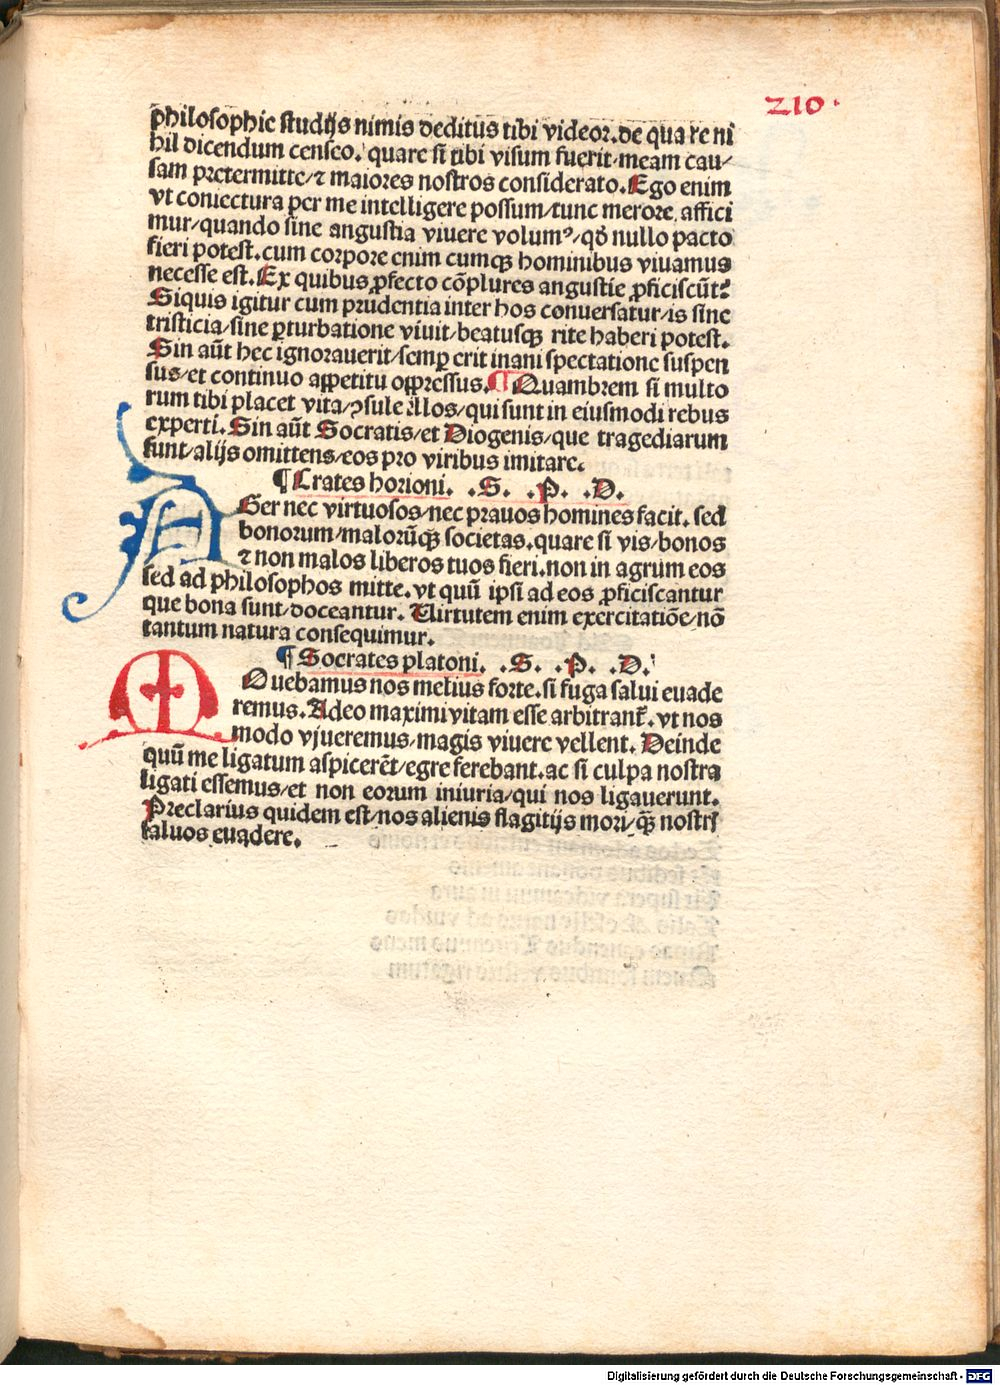 210.
philosophie studijs nimis deditus tibi videor. de qua re ni
hil dicendum censeo. quare si tibi visum fuerit/meam cau/
sam pretermitte/⁊ maiores nostros considerato. Ego enim
vt coniectura per me intelligere possum/tunc merore affici
mur/quando sine angustia viuere volumꝰ/qđ nullo pacto
fieri potest. cum corpore enim cumqꝫ hominibus viuamus
necesse est. Ex quibus ꝓfecto cōplures angustie ꝓficiscūt᷑
Siquis igitur cum prudentia inter hos conuersatur/is sine
tristicia/sine ꝑturbatione viuit/beatusqꝫ rite haberi potest.
Sin aūt hec ignorauerit/semꝑ erit inani spectatione suspen
sus/et continuo aꝑpetitu oꝑpressus. ¶ Quambrem si multo
rum tibi placet vita/ↄsule illos/qui sunt in eiusmodi rebus
experti. Sin aūt Socratis/et Diogenis/que tragediarum
sunt/alijs omittens/eos pro viribus imitare.
¶ Crates horioni. .S. .P. .D.
AGer nec virtuosos/nec prauos homines facit. sed
bonorum/malorūqꝫ societas. quare si vis/bonos
⁊ non malos liberos tuos fieri. non in agrum eos
sed ad philosophos mitte. vt quū ipsi ad eos ꝓficiscantur
que bona sunt/doceantur. Uirtutem enim exercitatiōe/nō
tantum natura consequimur.
¶ Socrates platoni. .S. .P. .D.
MOuebamus nos melius forte. si fuga salui euade
remus. Adeo maximi vitam esse arbitrant᷑. vt nos
modo viueremus/magis viuere vellent. Deinde
quū me ligatum aspicerēt/egre ferebant. ac si culpa nostra
ligati essemus/et non eorum iniuria/qui nos ligauerunt.
Preclarius quidem est/nos alienis flagitijs mori/qꝫ̄ nostris
saluos euadere.
Digitalisierung gefördert durch die Deutsche Forschungsgemeinschaft - DFG